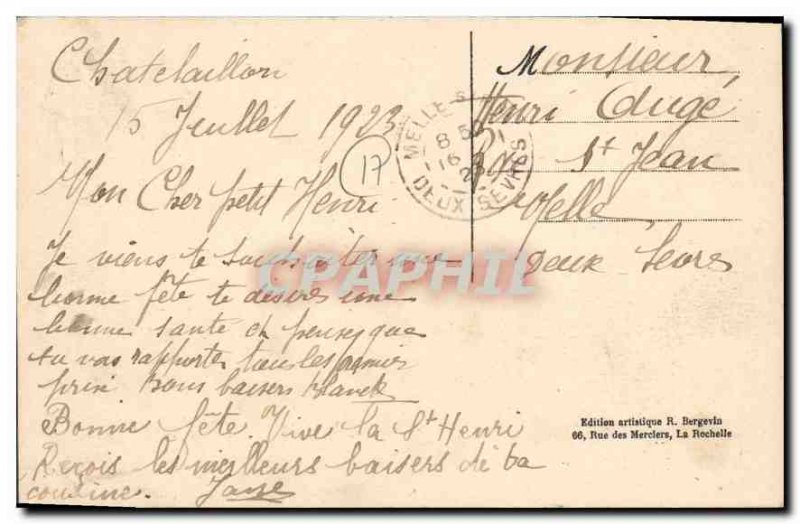 Chatelaillon
15 Juillet 1923
17
Mon Cher petit Henri
Je viens te souhaiter une
bonne fête te désires une
bonne santé et penses que
tu vas rapporter tous les premier
prix bons baisers
Bonne fête. Vive la St Henri
Reçois les meilleurs baisers de ta
cousine.
MELLE
8
16
23
DEUX SEVRES
CPAPHIL
Monsieur,
Henri Augé
St Jean
Melle
Deux Sevres
Edition artistique R. Bergevin
66, Rue des Merciers, La Rochelle